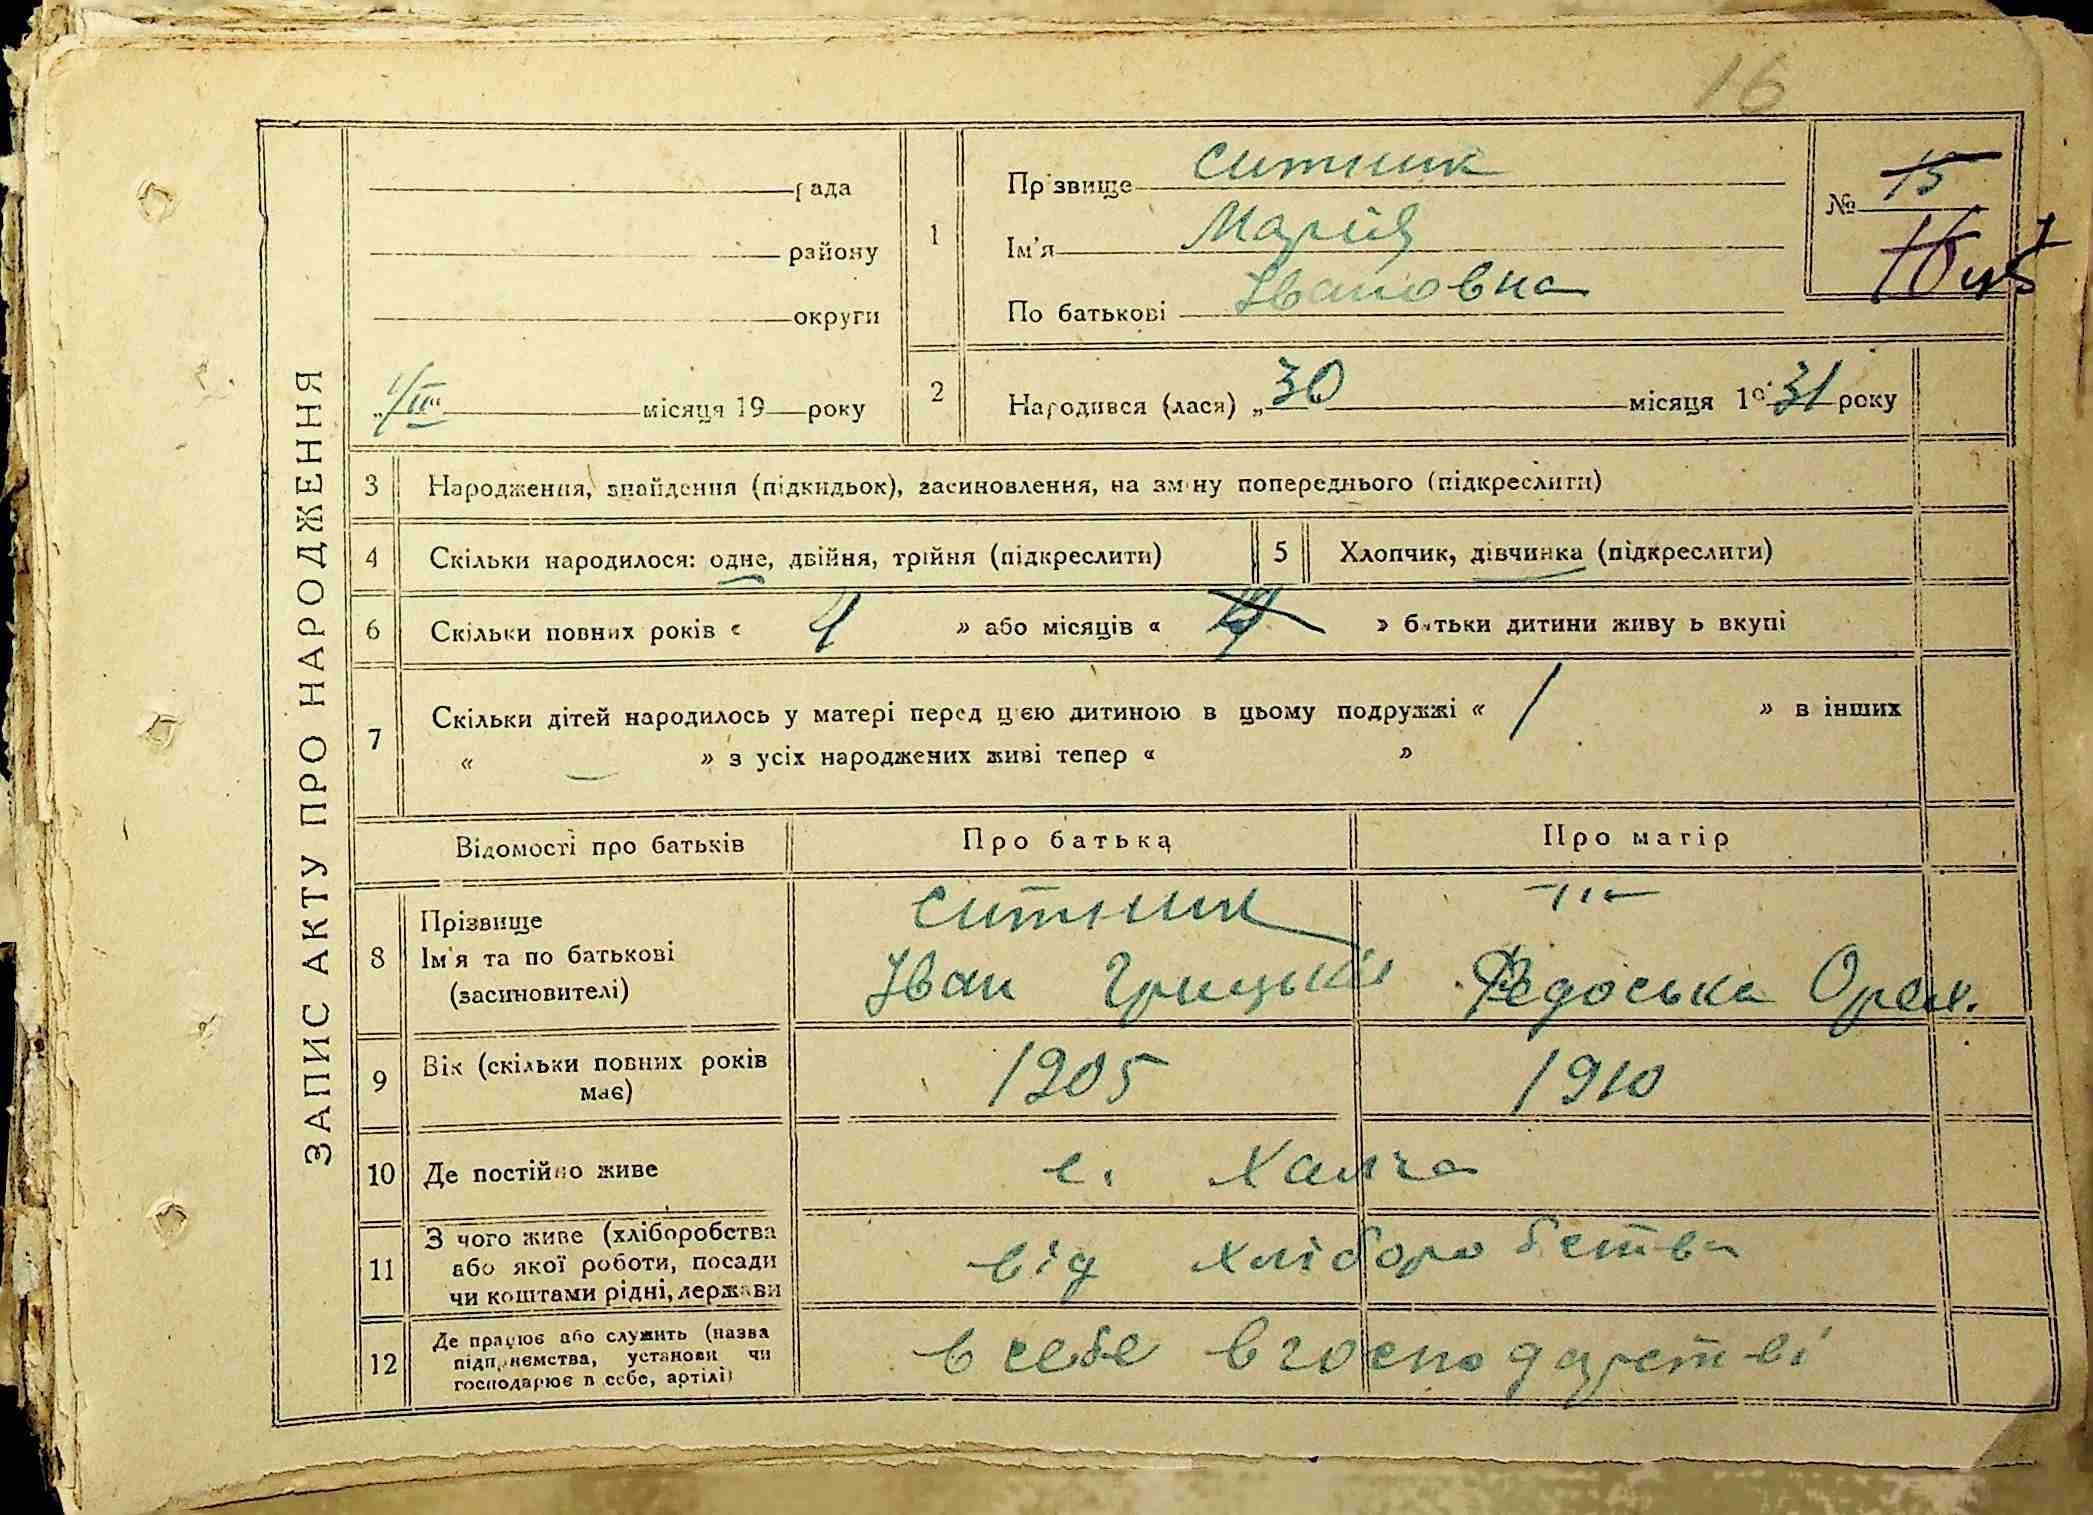 16
ЗАПИС АКТУ ПРО НАРОДЖЕННЯ
рада
району
округи
„1/III“ місяця 19 року
1
Прізвище Ситник
Ім'я Марія
По батькові Івановна
№ 15
16
2 Народився (лася) „30“ місяця 1931 року
3 Народження, знайдення (підкидьок), засиновлення, на зміну попереднього (підкреслити)
4 Скільки народилося: одне, двійня, трійня (підкреслити)
5 Хлопчик, дівчинка (підкреслити)
6 Скільки повних років « 4 » або місяців « » батьки дитини живуть вкупі
7 Скільки дітей народилось у матері перед цією дитиною в цьому подружжі « 1 » в інших
« — » з усіх народжених живі тепер « »
Відомості про батьків Про батька Про матір
8 Прізвище
Ім'я та по батькові
(засиновителі)
Ситник
Іван Грицьків
—"—
Федоська Орех.
9 Вік (скільки повних років
має)
1905 1910
10 Де постійно живе с. Халча
11 З чого живе (хліборобства
або якої роботи, посади
чи коштами рідні, держави
від хліборобства
12 Де працює або служить (назва
підприємства, установи чи
господарює в себе, артілі)
в себе в господарстві